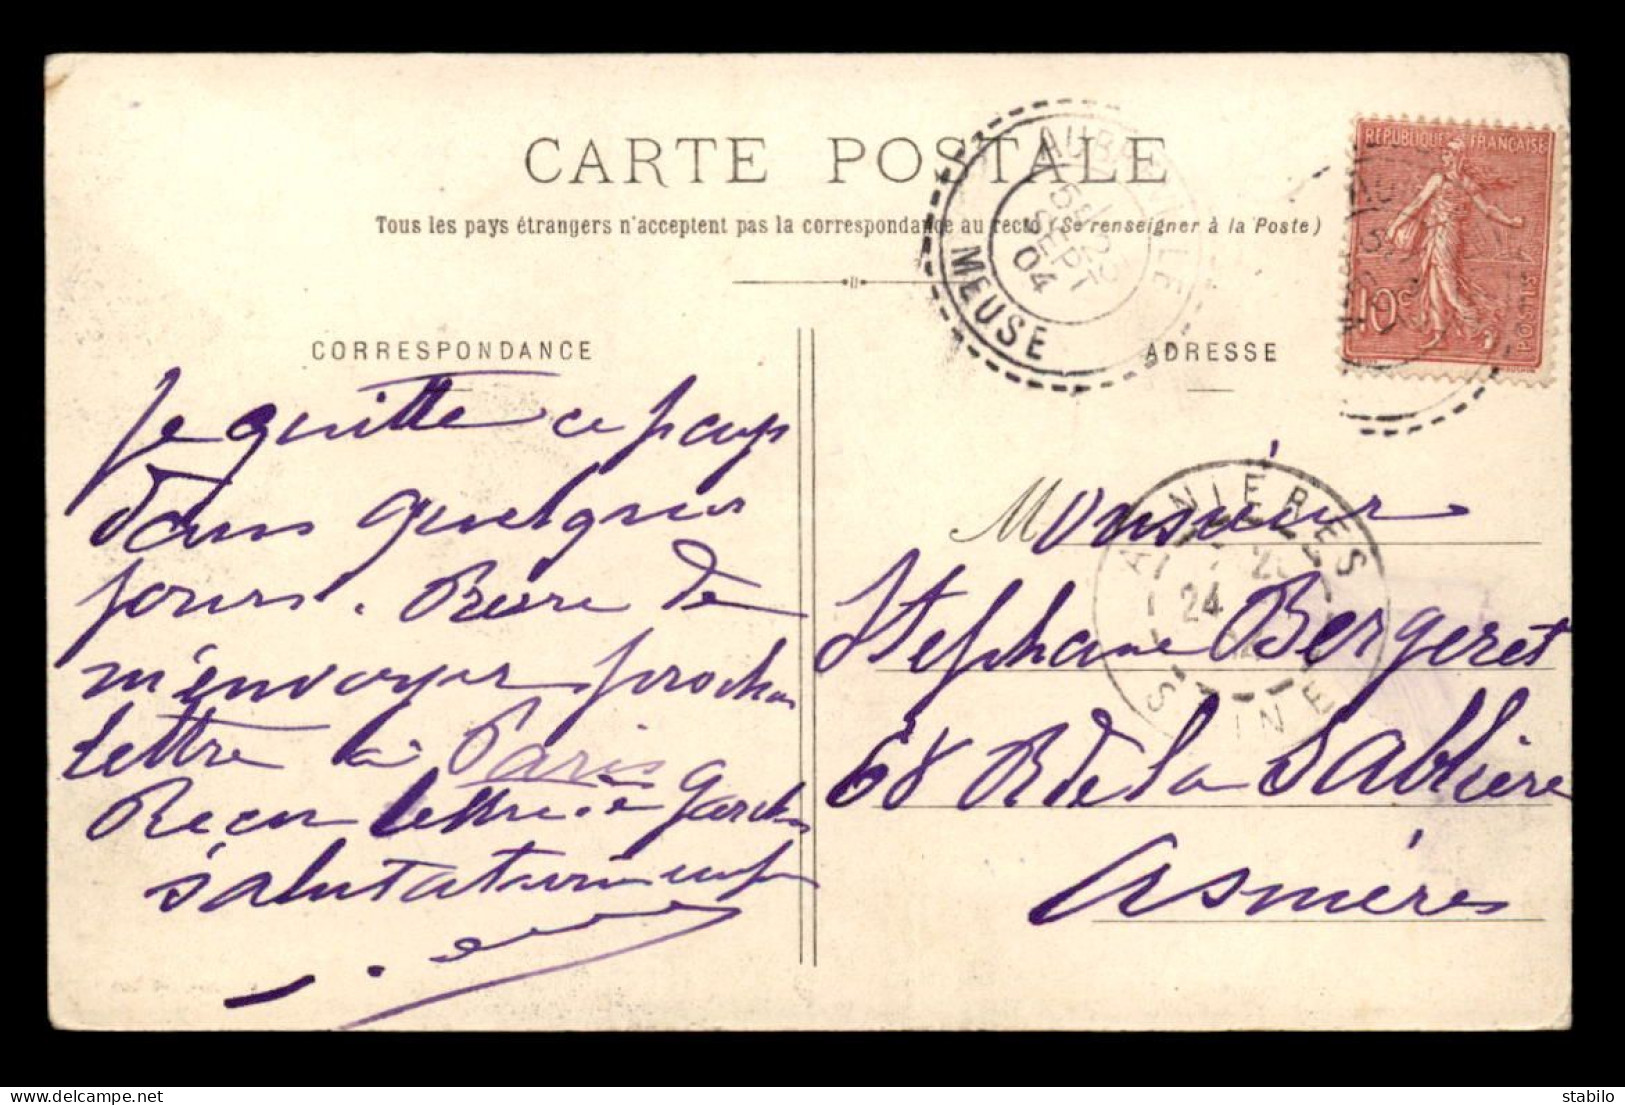 CARTE POSTALE
Tous les pays étrangers n'acceptent pas la correspondance au recto (Se renseigner à la Poste)
CORRESPONDANCE
Je quitte ce pays
dans quelques
jours. Prière de
m'envoyer prochain
lettre à Paris
Reçu lettre à Garches
salutations
ADRESSE
Monsieur
Stephane Bergeret
68 R de la Sablière
Asnières
REPUBLIQUE FRANÇAISE
10c
POSTES
MEUSE
SEPT
04
ASNIÈRES
24
SEINE
stabilo